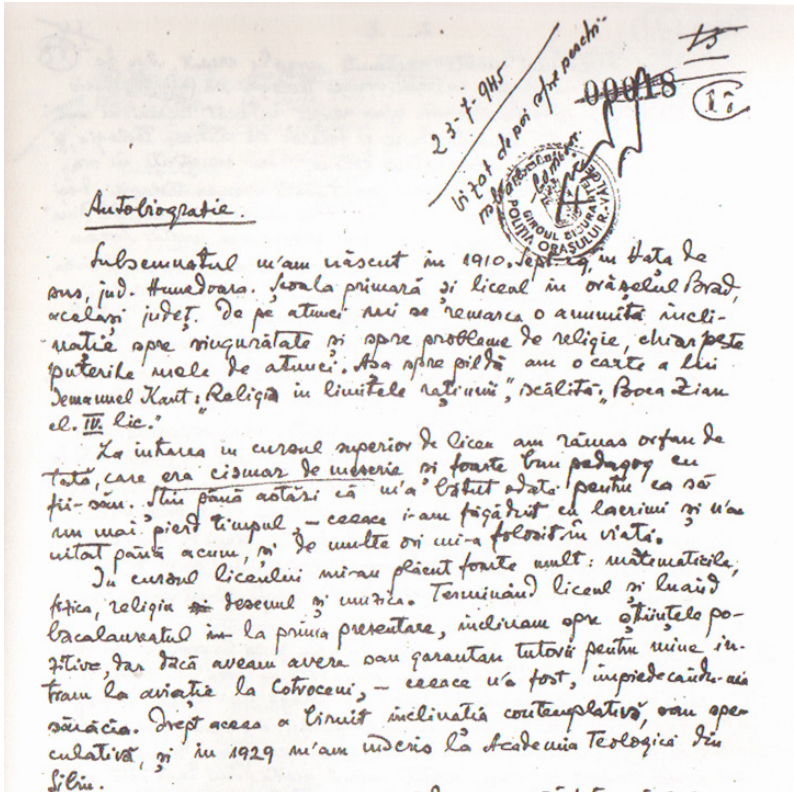 15
00018
18
23-7-945
vizat depoi spre neschi-
GIROUL SIGURANTEI
POLIȚIA ORAȘULUI R. VÂLCEA
Autobiografie.
Subsemnatul m'am născut în 1910. Sept. 29, în Vața de
sus, jud. Hunedoara. Școala primară și liceul în orășelul Brad,
același județ. De pe atunci mi se remarca o anumită încli-
nație spre singurătate și spre probleme de religie, chiar peste
puterile mele de atunci. Așa spre pildă am o carte a lui
Iemanuel Kant: "Religia în limitele rațiunii", iscălită: "Boca Zian
cl. IV. lic."
La intrarea în cursul superior de liceu am rămas orfan de
tată, care era cismar de meserie și foarte bun pedagog cu
fii-său. Știu până astăzi că m'a bătut odată pentru ca să
nu mai pierd timpul, – ceeace i-am făgăduit cu lacrimi și n'am
uitat până acum, și de multe ori mi-a folosit în viață.
În cursul liceului mi-au plăcut foarte mult: matematicile,
fizica, religia desenul și muzica. Terminând liceul și luând
bacalaureatul la prima prezentare, înclinam spre științele po-
zitive, dar dacă aveam avere sau garantau tutorii pentru mine in-
tram la aviație la Cotroceni, – ceeace n'a fost, împiedecându-mă
sărăcia. Drept aceea a biruit înclinația contemplativă, sau spe-
culativă, și în 1929 m'am înscris la Academia Teologică din
Sibiu.